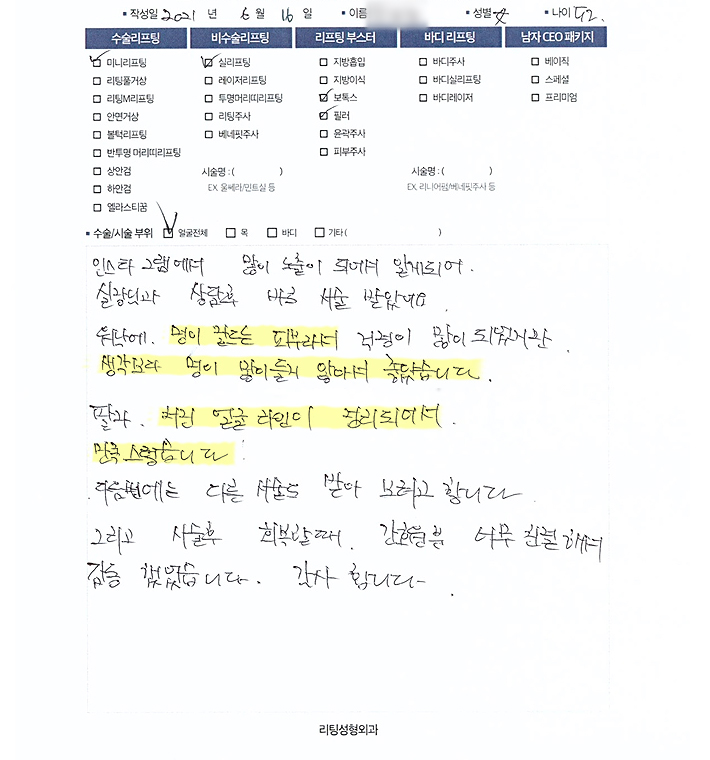 작성일 2021 년 6 월 16 일 이름 성별 女 나이 52.
수술리프팅 비수술리프팅 리프팅 부스터 바디 리프팅 남자 CEO 패키지
미니리프팅 실리프팅 지방흡입 바디주사 베이직
리팅풀거상 레이저리프팅 지방이식 바디실리프팅 스페셜
리팅M리프팅 투명머리띠리프팅 보톡스 바디레이저 프리미엄
안면거상 리팅주사 필러
볼턱리프팅 베네핏주사 윤곽주사
반투명 머리띠리프팅 피부주사
상안검 시술명 : ( ) 시술명 : ( )
하안검 EX. 울쎄라/민트실 등 EX. 리니어펌/베네핏주사 등
엘라스티꿈
수술/시술 부위 얼굴전체 목 바디 기타 ( )
인스타 그램에서 많이 노출이 되어서 알게되어.
실장님과 상담후 바로 시술 받았어요
워낙에. 멍이 잘드는 피부라서 걱정이 많이 되었지만.
생각보다 멍이 많이들지 않아서 좋았습니다.
팔자. 처진 얼굴 라인이 정리되어서.
만족스럽습니다.
다음번에는 다른 시술도 받아 보려고 합니다
그리고 시술후 회복할때. 간호원분 너무 친절하셔서
감동 했었습니다. 감사 합니다~.
리팅성형외과